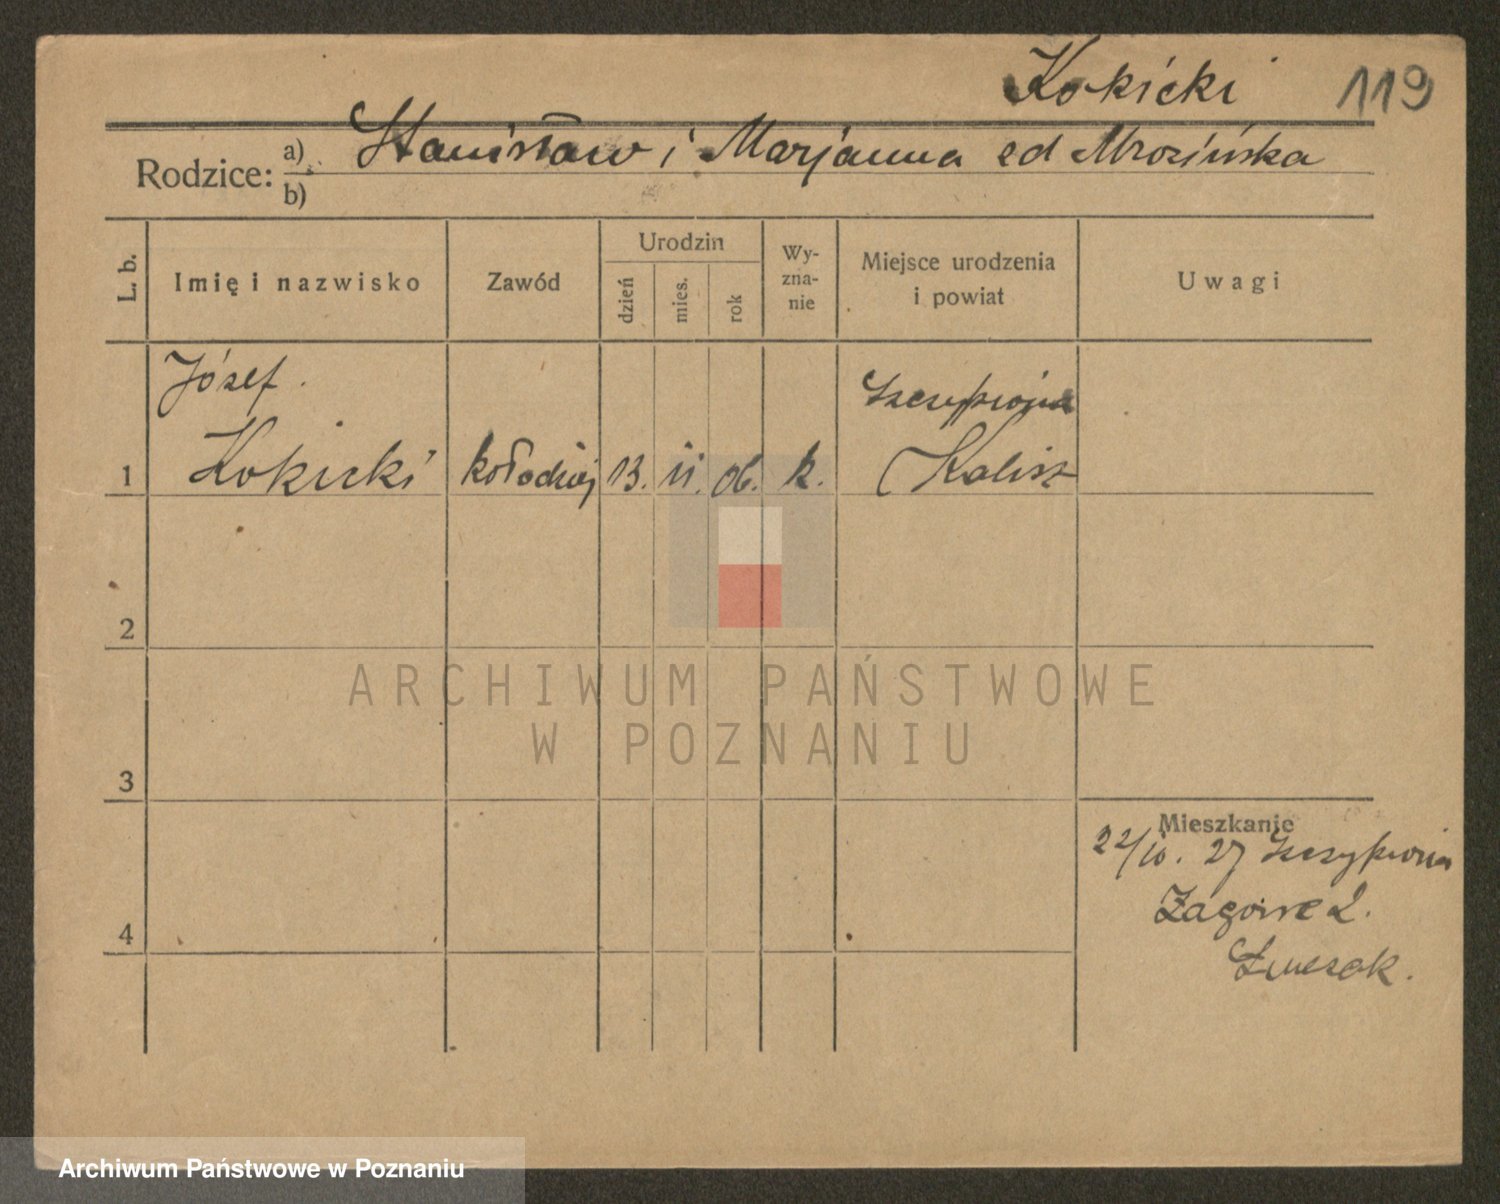 Kokicki 119
Rodzice: a) Stanisław i Marjanna ed Mrozińska
b)
L. b. Imię i nazwisko Zawód Urodzin dzień mies. rok Wy-zna-nie Miejsce urodzenia i powiat Uwagi
Józef Szczypiorna
1 Kokicki kołodziej 13. II. 06. k. Kalisz
2
ARCHIWUM PAŃSTWOWE
W POZNANIU
3
Mieszkanie
22/10. 27 Szczypiorna
Zagorze 2.
4
Archiwum Państwowe w Poznaniu